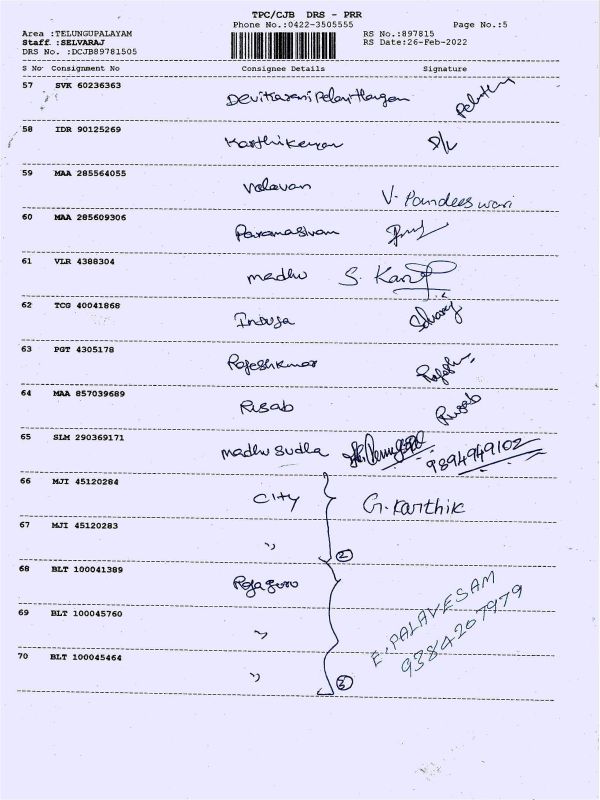 TPC/CJB DRS - PRR
Phone No.:0422-3505555 Page No.:5
Area :TELUNGUPALAYAM RS No.:897815
Staff :SELVARAJ RS Date:26-Feb-2022
DRS No. :DCJB89781505
S No Consignment No Consignee Details Signature
57 SVK 60236363
58 IDR 90125269 Karthikeyan
59 MAA 285564055 Valavan V. Pandeeswari
60 MAA 285609306 Paramasivam
61 VLR 4388304 madhu S. Kani
62 TCG 40041868 Induja
63 PGT 4305178 Rajeshkumar
64 MAA 857039689 Risab Risab
65 SLM 290369171 madhu sudha 9894949102
66 MJI 45120284 City G. Karthik
67 MJI 45120283 " 2
68 BLT 100041389 Rajaguru
69 BLT 100045760 " E. PALAVESAM
70 BLT 100045464 " 3 9384207979